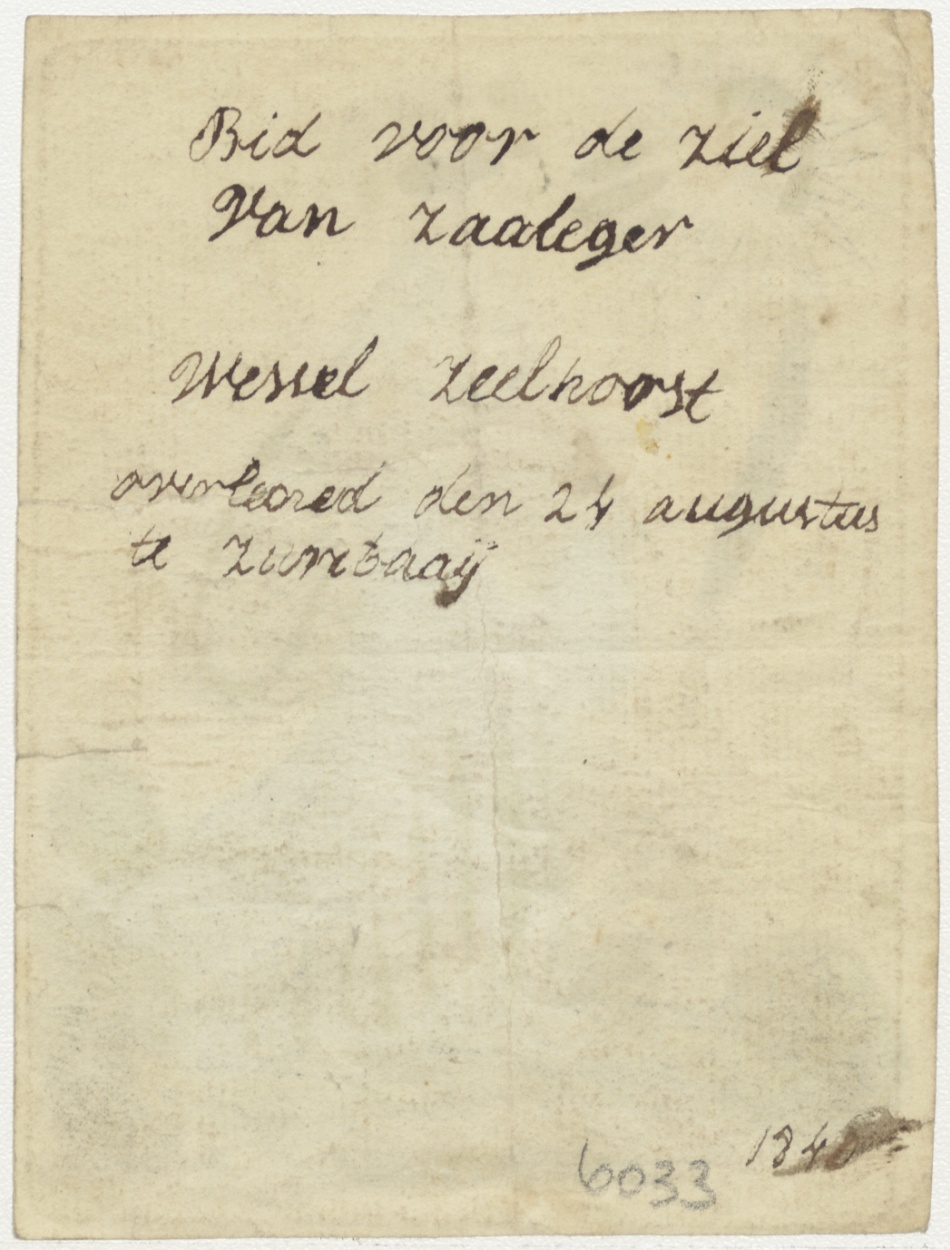 Bid voor de ziel
Van zaaleger
Wessel zeelhoorst
overleored den 24 augustus
te
6033 184